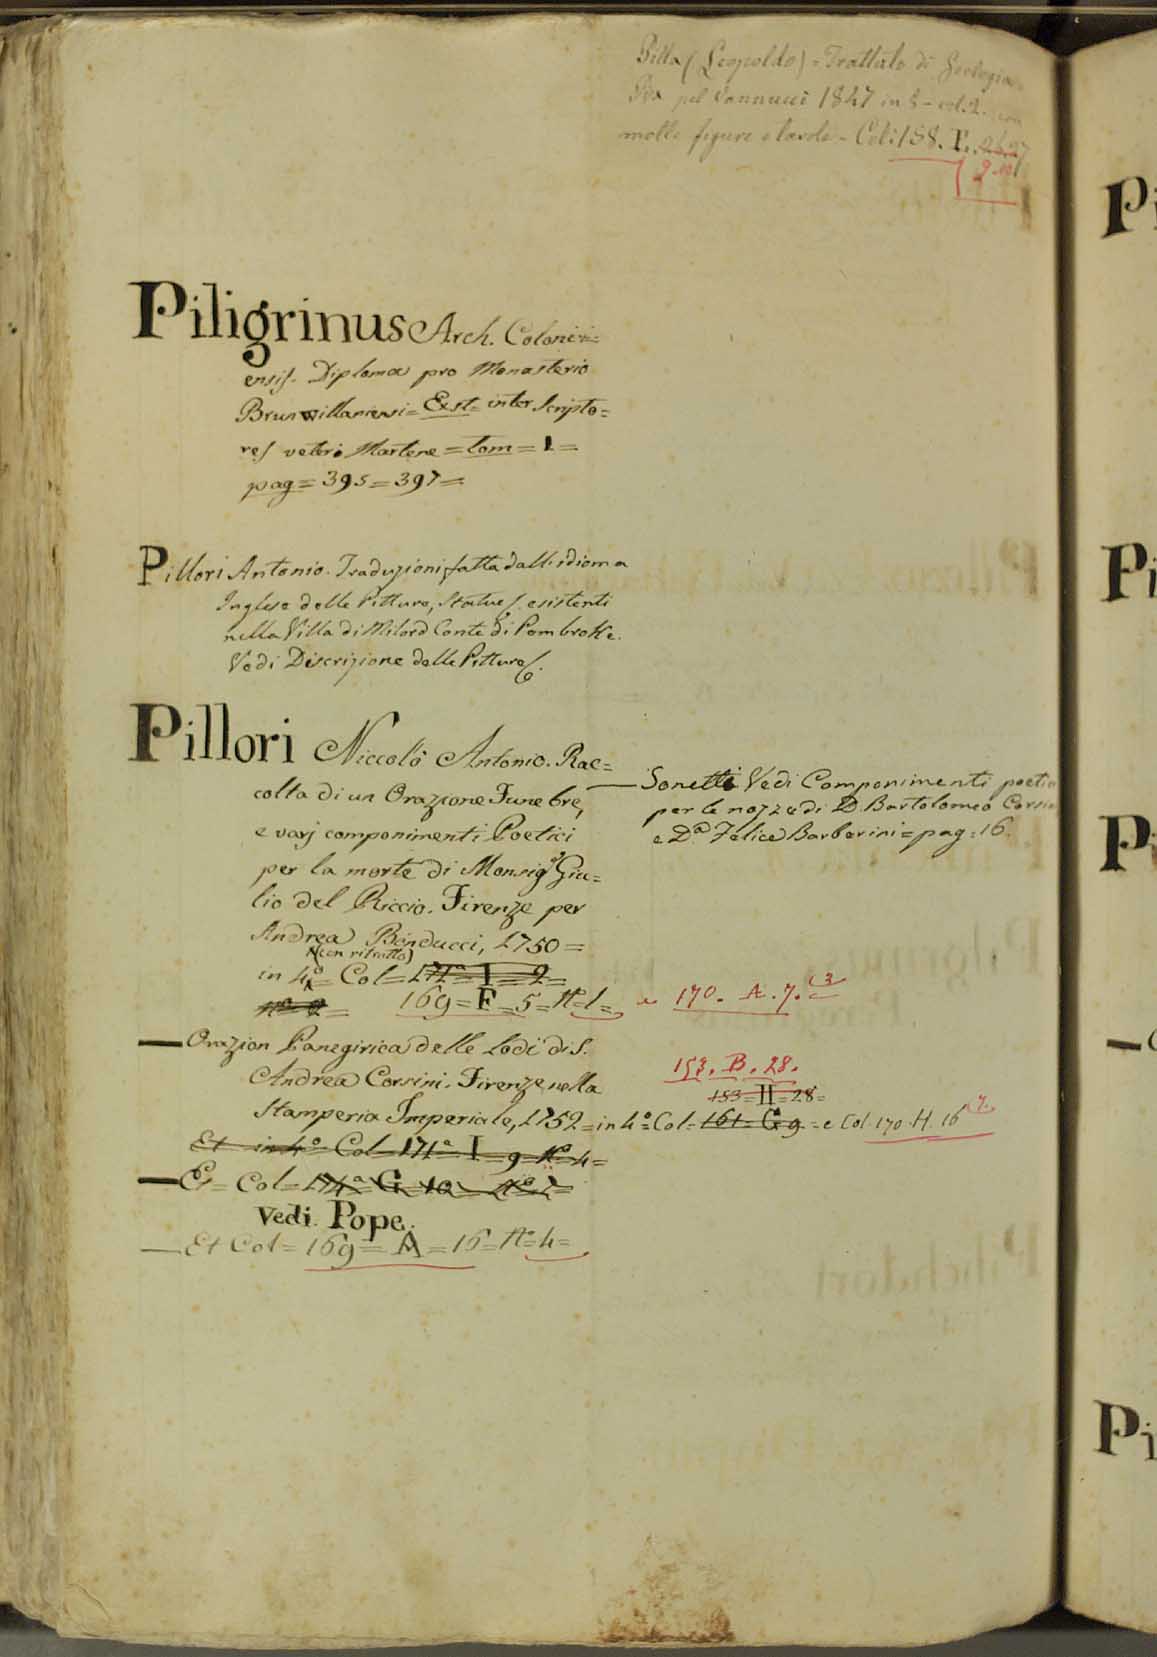 Pilla (Leopoldo) = Trattato di Geologia
Pisa pel Vannucci 1847 in 8 - vol. 2. con
molte figure e tavole - Col: 158. F. 26.27
9.10
Piligrinus Arch. Coloni=
ensis. Diploma pro Monasterio
Brunwillariensi = Ext = inter Scripto=
res veteri Martene = tom = 1 =
pag = 395 = 397 =
Pillori Antonio. Traduzioni fatta dall'idioma
Inglese delle Pitture, Statue &. esistenti
nella Villa di Milord Conte di Pembroke.
Vedi Discrizione delle Pitture &.
Pillori Niccolò Antonio. Rac=
colta di un Orazione Funebre,
e varj componimenti Poetici
per la morte di Monsigr Giu=
lio del Riccio. Firenze per
Andrea Bonducci, 1750 =
(con ritratto)
in 4o = Col = 171a = I = 9 =
169 = F = 5 = No 1 = e 170. A. 7. (3
— Sonetti Vedi Componimenti poetic
per le nozze di D. Bartolomeo Corsin
e Da Felice Barberini = pag: 16.
— Orazion Panegirica delle Lodi di S.
Andrea Corsini. Firenze nella
Stamperia Imperiale, 1752 = in 4o = Col = 161 = G 9 = e Col. 170. H. 16 (7.
153. B. 28.
153 = H = 28 =
Et in 4o = Col = 171a I = 9 No 4 =
— E = Col = 174a = G = 10 = No 7 =
Vedi. Pope.
— Et Col = 169 = A = 16 = No 4 =
Pi
Pi
Pi
Pi